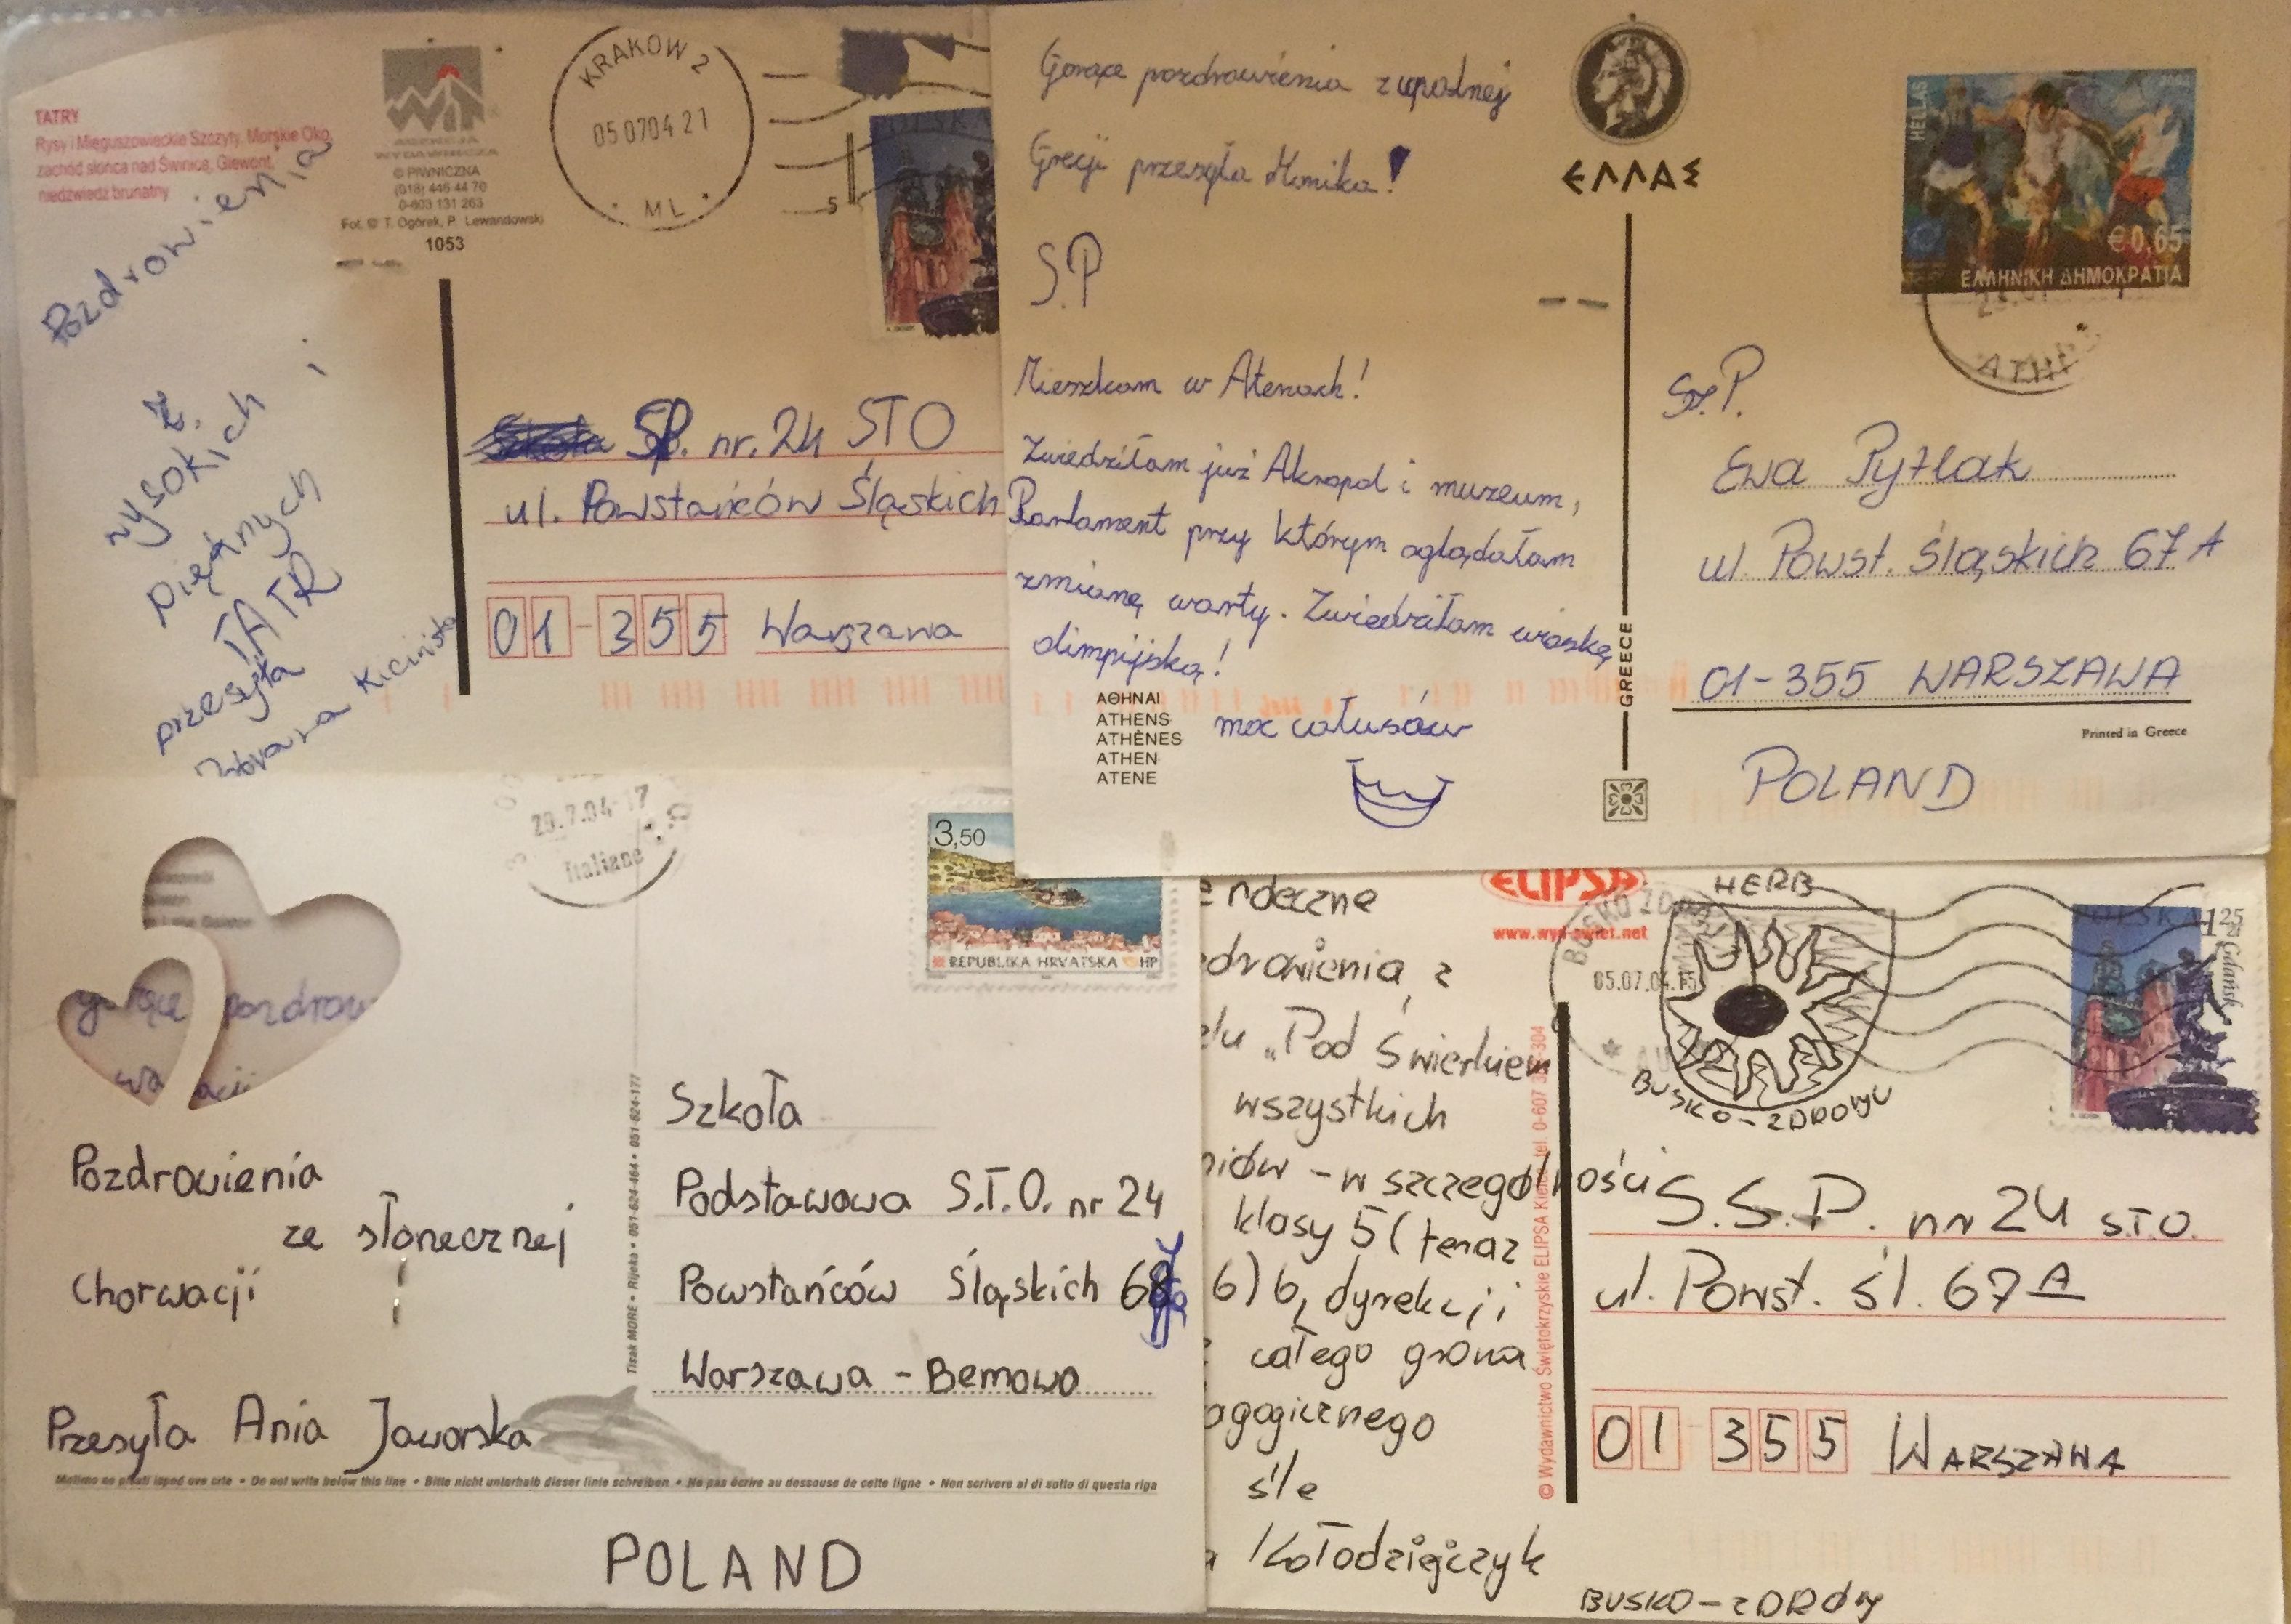 TATRY
Rysy i Mięguszowieckie Szczyty, Morskie Oko,
zachód słońca nad Świnicą, Giewont,
niedźwiedź brunatny
AGENCJA
WYDAWNICZA
© PIWNICZNA
(018) 446 44 70
0-603 131 263
Fot. © T. Ogórek, P. Lewandowski
1053
KRAKOW 2
05 07 04 21
ML
5
POLSKA
Pozdrowienia
z
wysokich i
pięknych
TATR
przesyła
Kicińska
SP. nr. 24 STO
ul. Powstańców Śląskich
01-355 Warszawa
Gorące pozdrowienia z upalnej
Grecji przesyła Monika!
S.P
Mieszkam w Atenach!
Zwiedziłam już Akropol i muzeum,
Parlament przy którym oglądałam
zmianę warty. Zwiedziłam wioskę
olimpijską!
moc całusów
ΑΘΗΝΑΙ
ATHENS
ATHÈNES
ATHEN
ATENE
ΕΛΛΑΣ
GREECE
HELLAS
€0,65
ΕΛΛΗΝΙΚΗ ΔΗΜΟΚΡΑΤΙΑ
Sz.P.
Ewa Pytlak
ul. Powst. Śląskich 67A
01-355 WARSZAWA
Printed in Greece
POLAND
29.7.04-17
Italiane
3,50
REPUBLIKA HRVATSKA HP
gorące pozdrow
Pozdrowienia
ze słonecznej
Chorwacji
Przesyła Ania Jaworska
Tisak MORE • Rijeka • 051-624-464 • 051-624-177
Szkoła
Podstawowa S.T.O. nr 24
Powstańców Śląskich
Warszawa - Bemowo
Molimo ne pisati ispod ove crte • Do not write below this line • Bitte nicht unterhalb dieser linie schreiben • Ne pas écrire au dessouse de cette ligne • Non scrivere al di sotto di questa riga
POLAND
erdeczne
zdrowienia z
elu „Pod Świerkiem
wszystkich
niów - w szczególności
klasy 5 (teraz
6) b, dyrekcji
całego grona
agogicznego
śle
a Kołodziejczyk
ELIPSA
www.wyd-swiet.net
© Wydawnictwo Świętokrzyskie ELIPSA Kielce, tel. 0-607 304
BUSKO ZDRÓJ
05.07.04.15
HERB
BUSKO-ZDROJU
POLSKA 1 25 zł
Gdańsk
S.S.P. nr 24 STO.
ul. Powst. śl. 67A
01 355 WARSZAWA
BUSKO-ZDRÓJ